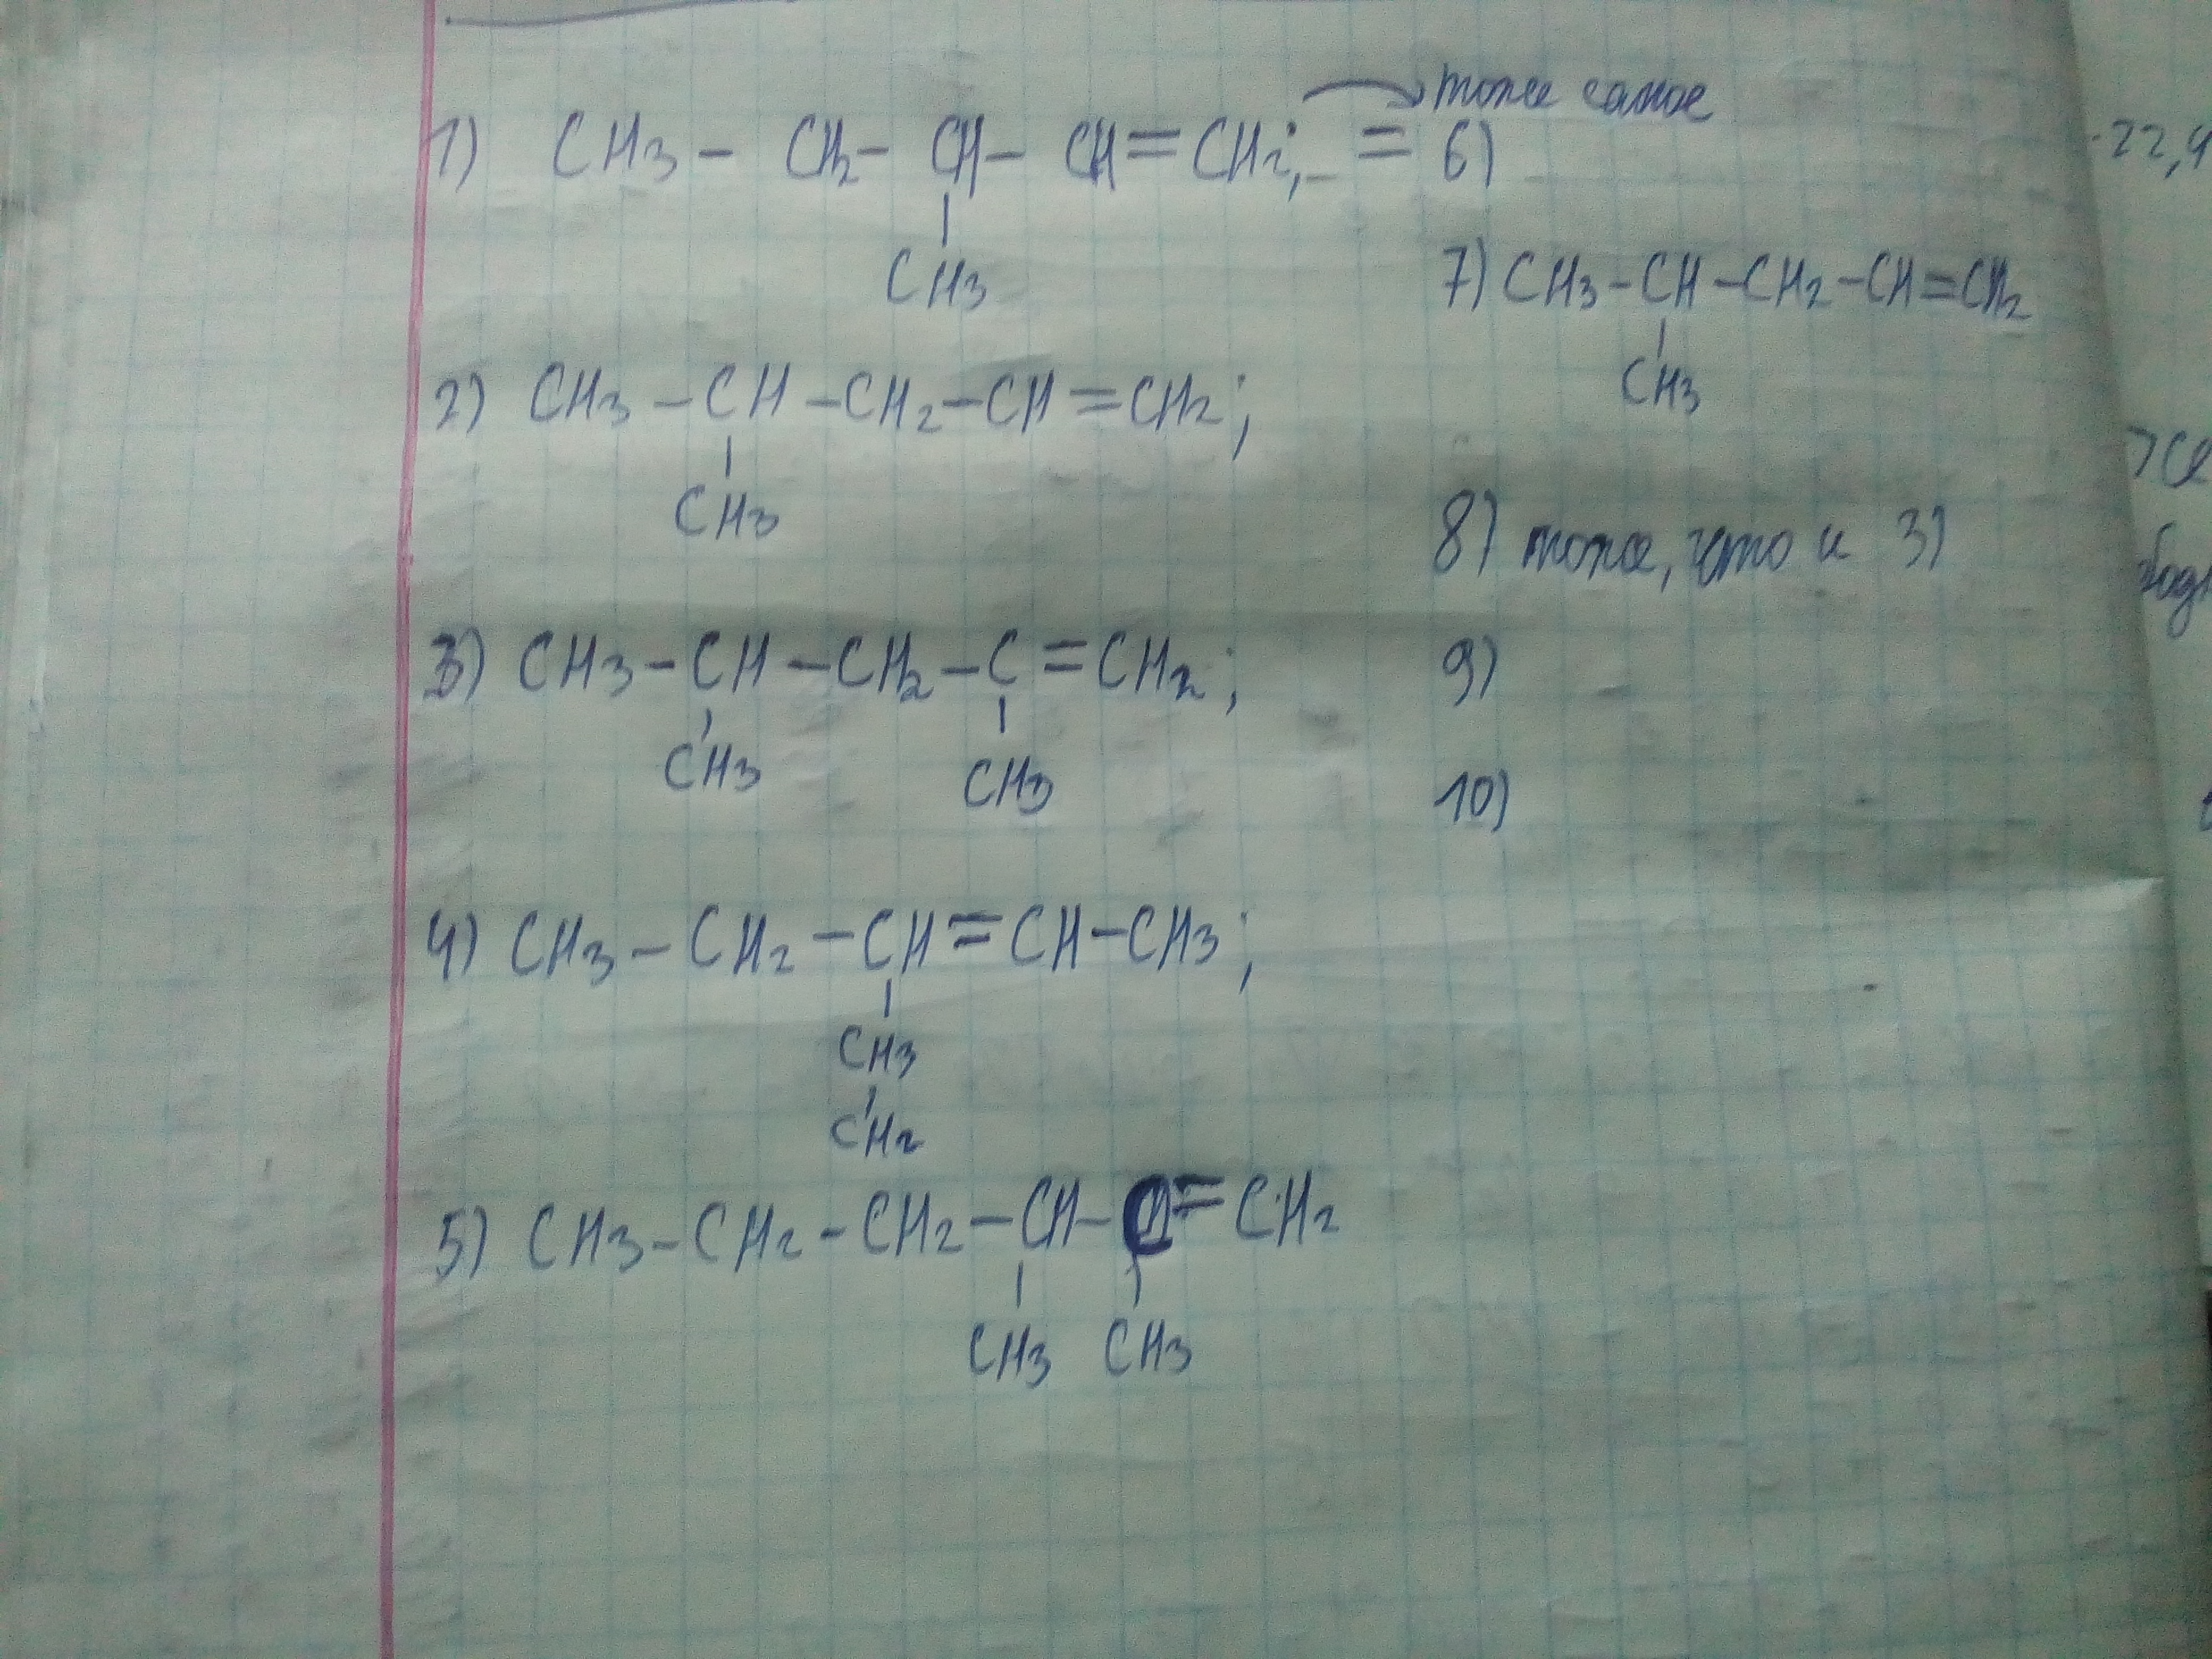 тоже самое
1) CH3 - CH2 - CH - CH = CH2; = 6)
CH3
7) CH3 - CH - CH2 - CH = CH2
CH3
2) CH3 - CH - CH2 - CH = CH2;
CH3
8) тоже, что и 3)
3) CH3 - CH - CH2 - C = CH2;
CH3 CH3
9)
10)
4) CH3 - CH2 - CH = CH - CH3;
CH3
CH2
5) CH3 - CH2 - CH2 - CH - C = CH2
CH3 CH3
22,4